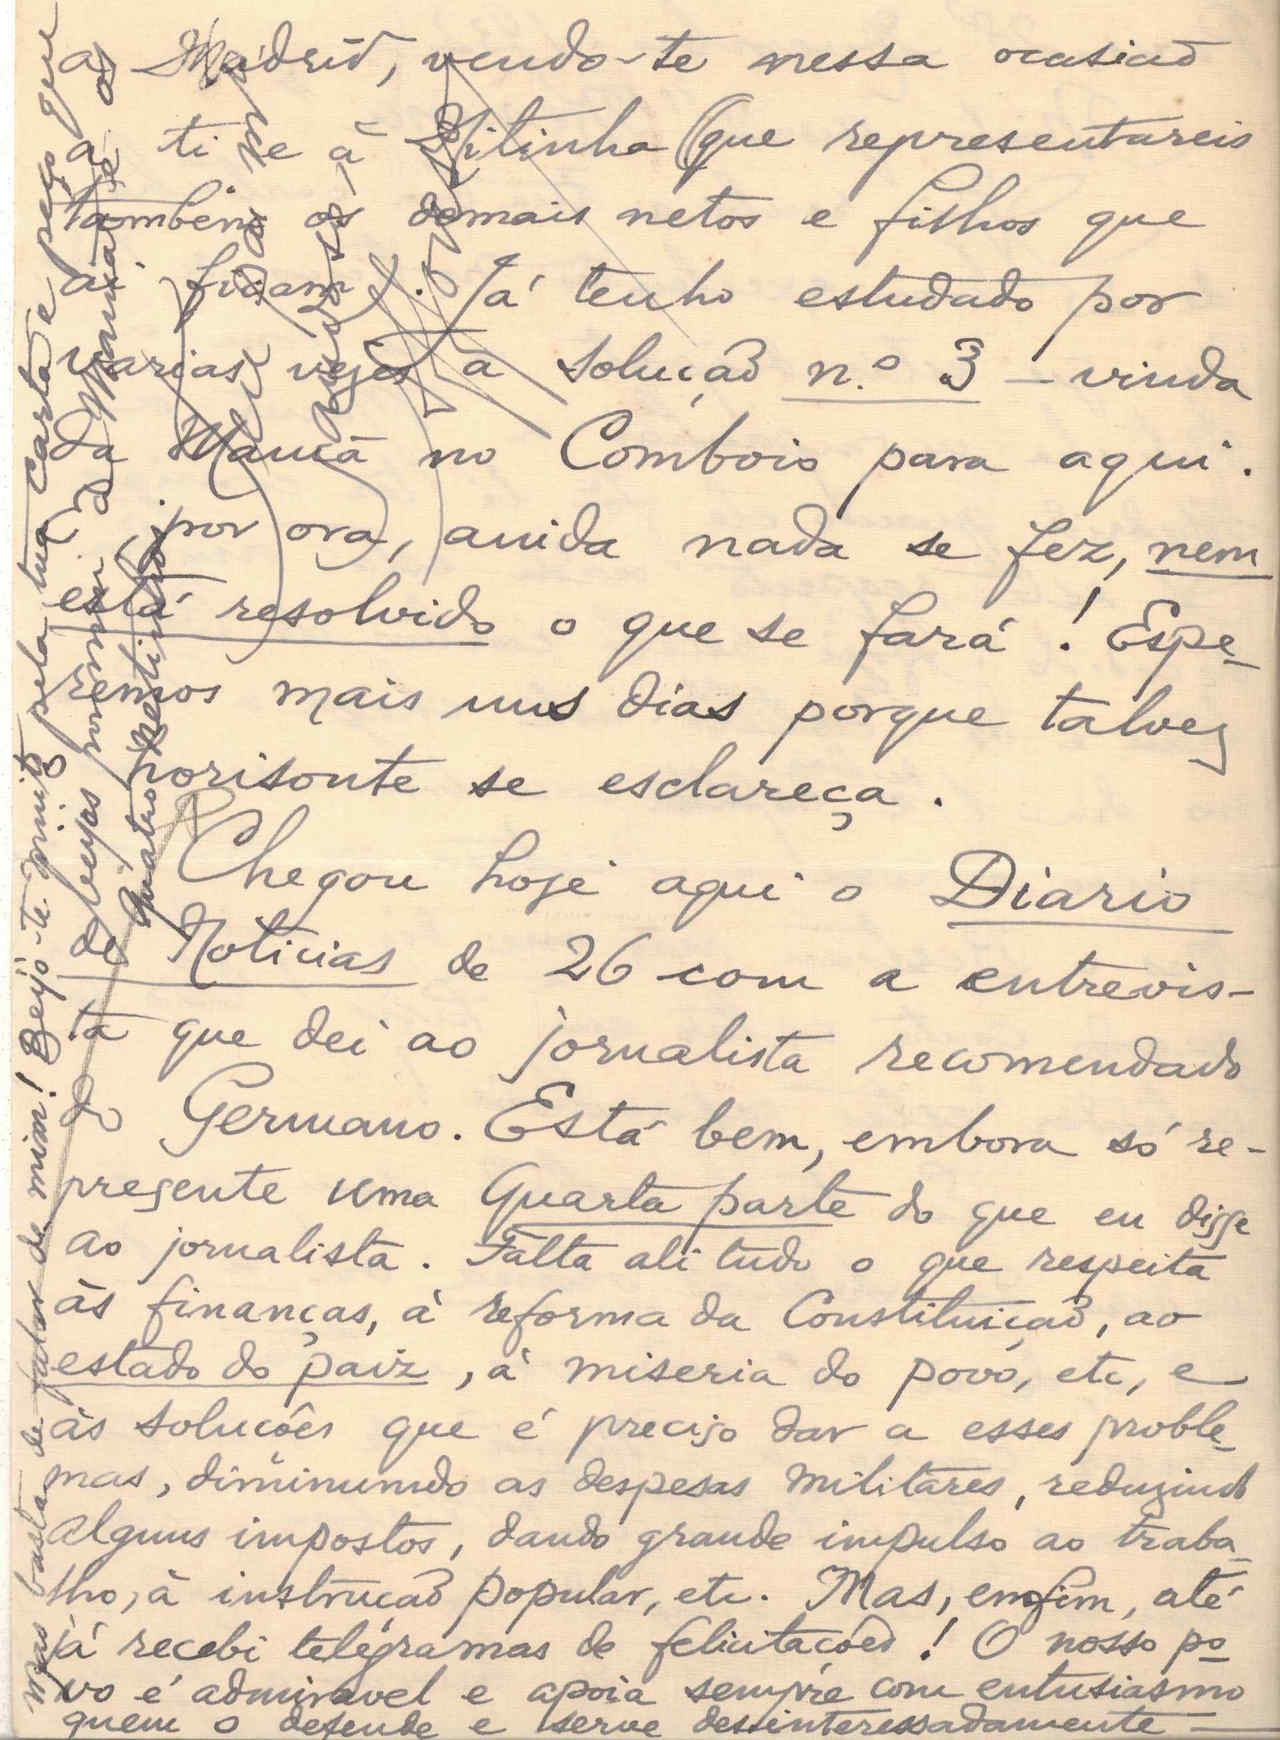 a Madrid, vendo-te nessa ocasião
a ti e à Gitinha (que representareis
tambem os demais netos e filhos que
aí ficam). Já tenho estudado por
varias vezes a solução n.º 3 – vinda
da Mamã no Comboio para aqui.
E, por ora, ainda nada se fez, nem
está resolvido o que se fará! Espe-
remos mais uns dias porque talvez
horisonte se esclareça.
Chegou hoje aqui o Diario
de Noticias de 26 com a entrevis-
ta que dei ao jornalista recomendado
do Germano. Está bem, embora só re-
presente uma quarta parte do que eu disse
ao jornalista. Falta ali tudo o que respeita
às finanças, à reforma da Constituição, ao
estado do paiz, à miseria do povo, etc, e
às soluções que é preciso dar a esses proble-
mas, diminuindo as despesas militares, reduzindo
alguns impostos, dando grande impulso ao traba-
lho, à instrução popular, etc. Mas, emfim, até
já recebi telegramas de felicitações! O nosso po-
vo é admiravel e apoia sempre com entusiasmo
quem o defende e serve desinteressadamente –
Mas basta de falar de mim! Beijo-te muito pela tua carta e peço que
dês beijos por mim à Mamã e aos
quatro netinhos